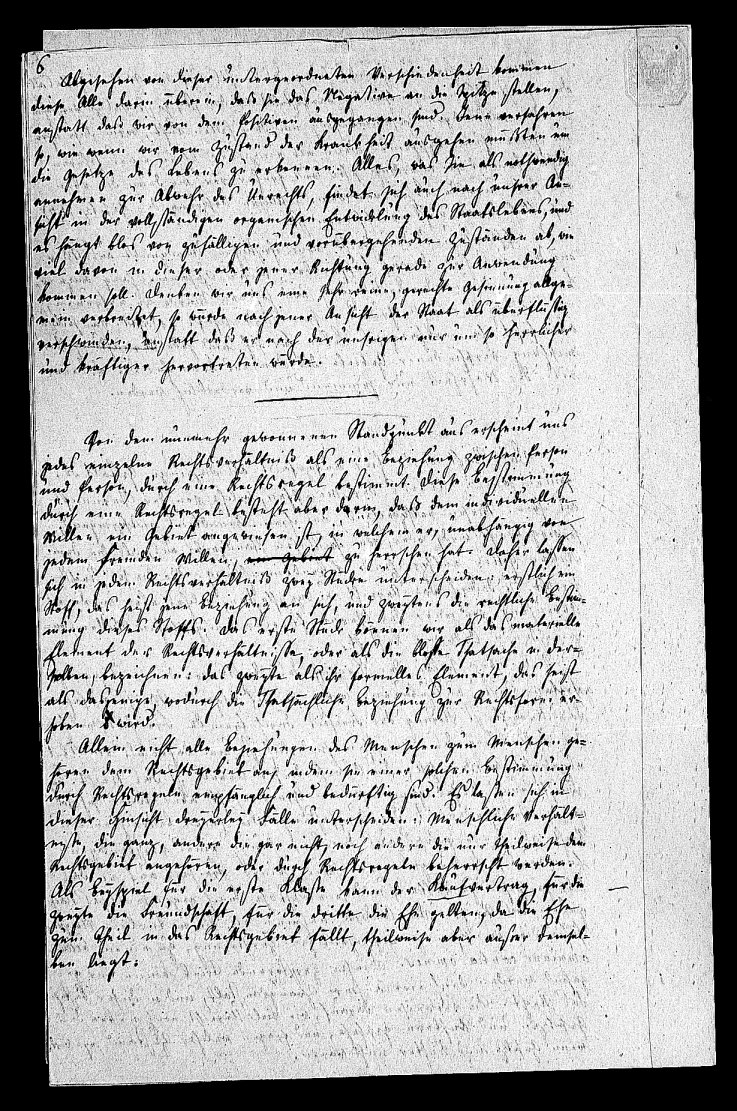 6
Abgesehen von dieser untergeordneten Verschiedenheit kommen
diese Alle darin überein, daß sie das Negative an die Spitze stellen,
anstatt daß wir von dem Positiven ausgegangen sind. Jene verfahren
so, wie wenn wir vom Zustand der Krankheit ausgehen müßten um
die Gesetze des Lebens zu erkennen. Alles, was Sie als nothwendig
annehmen zur Abwehr des Unrechts, findet sich auch nach unsrer An-
sicht in der vollständigen organischen Entwicklung des Staatslebens, und
es hängt blos von zufälligen und vorübergehenden Zuständen ab, wie
viel davon in dieser oder jener Richtung gerade zur Anwendung
kommen soll. Denken wir uns eine sehr reine, gerechte Gesinnung allge-
mein verbreitet, so würde nach jener Ansicht der Staat als überflüssig
verschwinden, anstatt daß er nach der unsrigen nur um so herrlicher
und kräftiger hervortreten würde.
Von dem nunmehr gewonnenen Standpunkt aus erscheint uns
jedes einzelne Rechtsverhältniß als eine Beziehung zwischen Person
und Person, durch eine Rechtsregel bestimmt. Diese Bestimmung
durch eine Rechtsregel besteht aber darin, daß dem individuellen
Willen ein Gebiet angewiesen ist, in welchem er, unabhängig von
jedem fremden Willen, ein Gebiet zu herrschen hat. Daher lassen
sich in jedem Rechtsverhältniß zwey Stücke unterscheiden: erstlich ein
Stoff, das heißt jene Beziehung an sich, und zweytens die rechtliche Bestim-
mung dieses Stoffs. Das erste Stück können wir als das materielle
Element der Rechtsverhältnisse, oder als die bloße Thatsache in der-
selben, bezeichnen: das zweyte als ihr formelles Element, das heißt
als dasjenige, wodurch die Thatsächliche Beziehung zur Rechtsform er-
hoben wird.
Allein nicht alle Beziehungen des Menschen zum Menschen ge-
hören dem Rechtsgebiet an, indem sie einer solchen Bestimmung
durch Rechtsregeln empfänglich und bedürftig sind. Es lassen sich in
dieser Hinsicht dreyerley Fälle unterscheiden: Menschliche Verhält-
nisse, die ganz, andere die gar nicht, noch andere die nur theilweise dem
Rechtsgebiet angehören, oder durch Rechtsregeln beherrscht werden.
Als Beyspiel für die erste Klasse kann der Kaufvertrag, für die
zweyte die Freundschaft, für die dritte die Ehe gelten, da die Ehe
zum Theil in das Rechtsgebiet fällt, theilweise aber außer demsel-
ben liegt.